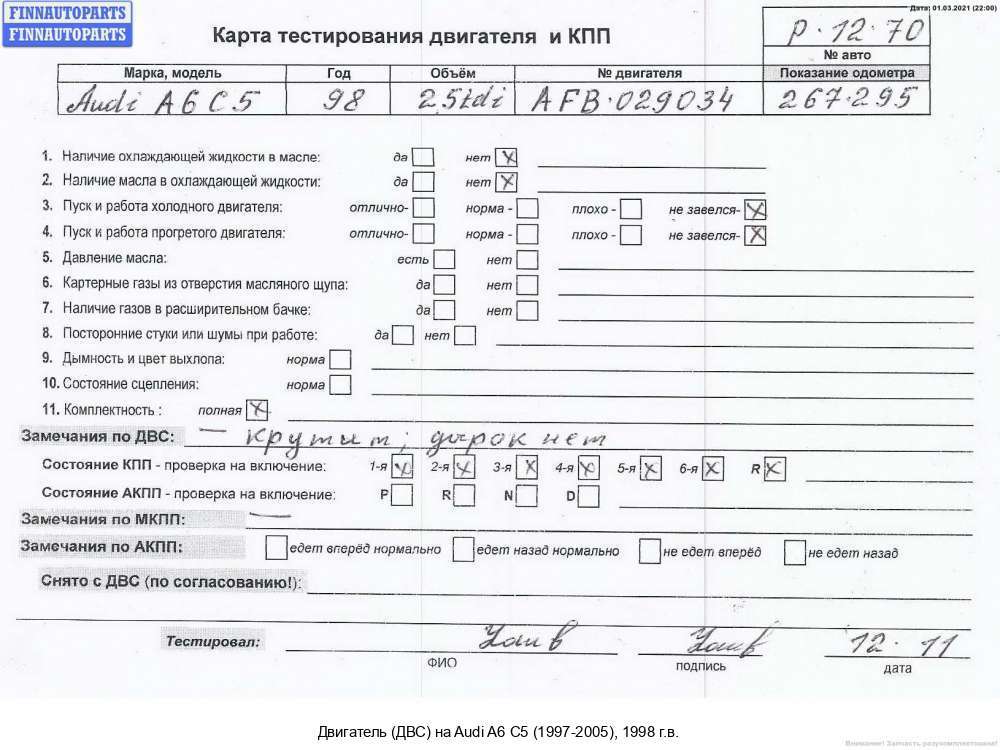 FINNAUTOPARTS
FINNAUTOPARTS
Дата: 01.03.2021 (22:00)
Карта тестирования двигателя и КПП
Р·12·70
№ авто
Марка, модель Год Объём № двигателя Показание одометра
Audi A6 C5 98 2.5tdi AFB·029034 267·295
1. Наличие охлаждающей жидкости в масле: да нет X
2. Наличие масла в охлаждающей жидкости: да нет X
3. Пуск и работа холодного двигателя: отлично- норма - плохо - не завелся- X
4. Пуск и работа прогретого двигателя: отлично- норма - плохо - не завелся- X
5. Давление масла: есть нет
6. Картерные газы из отверстия масляного щупа: да нет
7. Наличие газов в расширительном бачке: да нет
8. Посторонние стуки или шумы при работе: да нет
9. Дымность и цвет выхлопа: норма
10. Состояние сцепления: норма
11. Комплектность : полная X
Замечания по ДВС: — крутит; дырок нет
Состояние КПП - проверка на включение: 1-я X 2-я X 3-я X 4-я X 5-я X 6-я X R X
Состояние АКПП - проверка на включение: P R N D
Замечания по МКПП: —
Замечания по АКПП: едет вперёд нормально едет назад нормально не едет вперёд не едет назад
Снято с ДВС (по согласованию!):
Тестировал: 12·11
ФИО подпись дата
Двигатель (ДВС) на Audi A6 C5 (1997-2005), 1998 г.в.
Внимание! Запчасть разукомплектована!